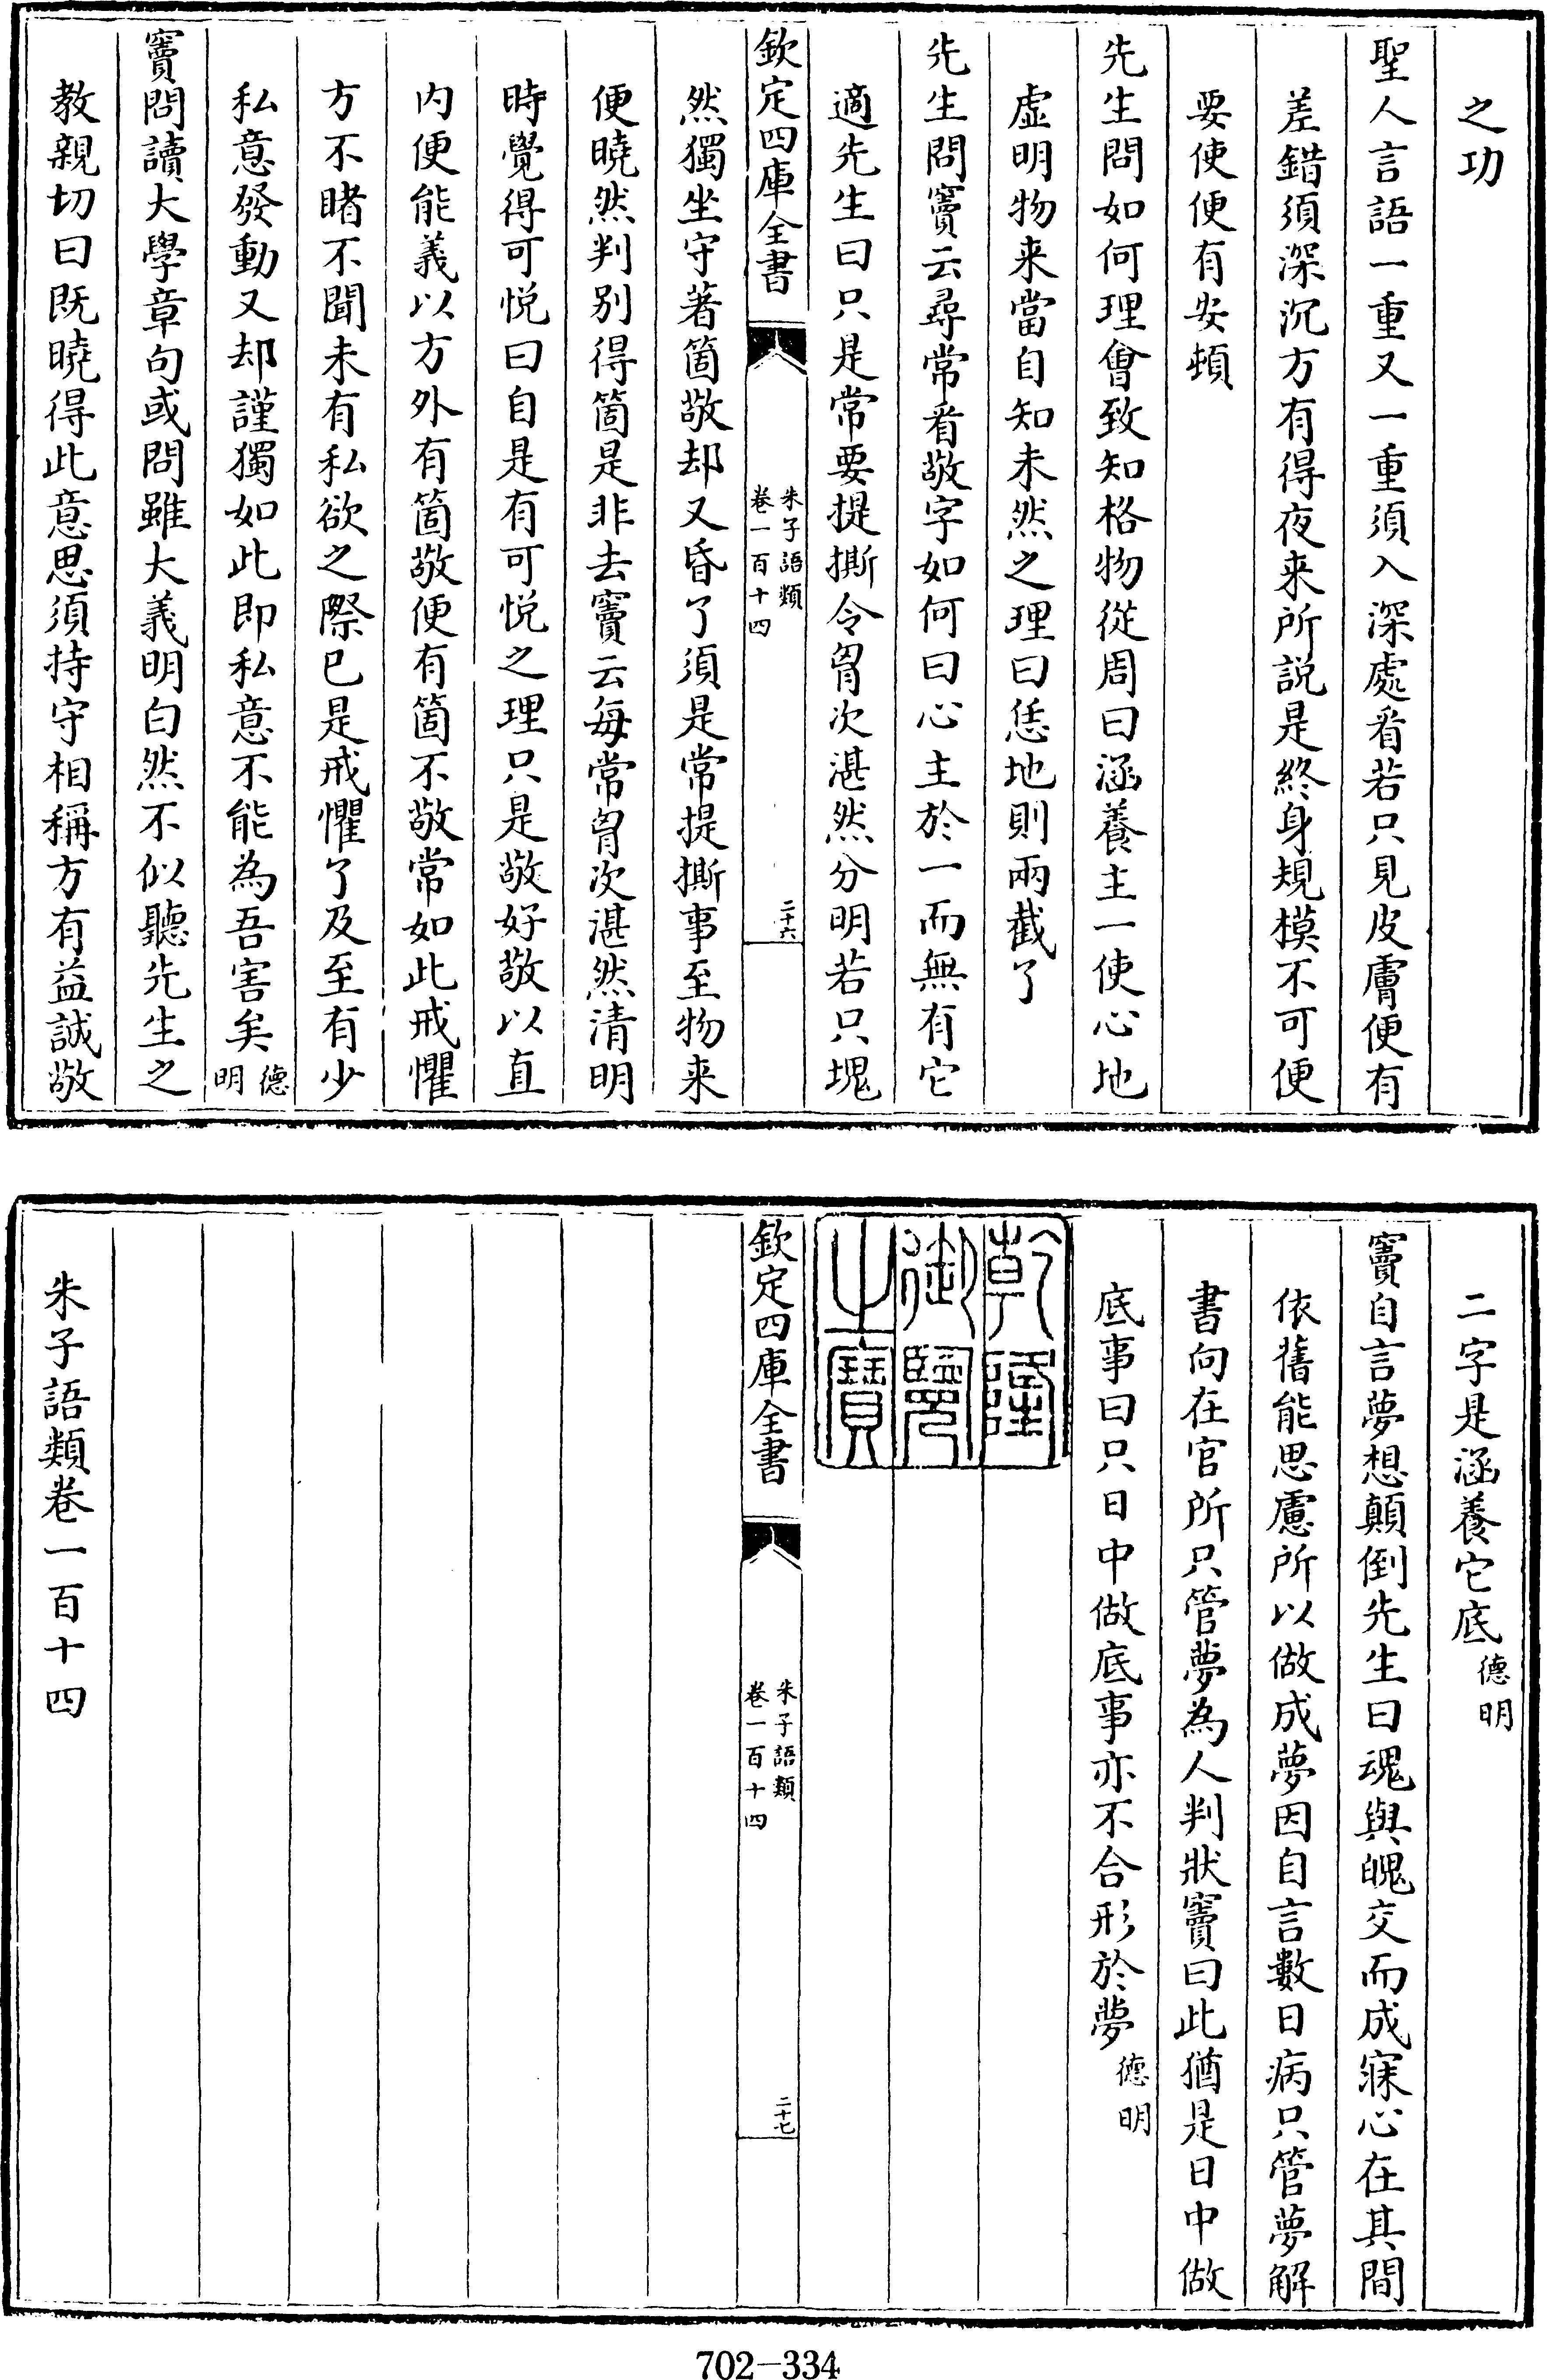 之功
聖人言語一重又一重須入深處看若只見皮膚便有
差錯須深沉方有得夜来所説是終身規模不可便
要使便有安頓
先生問如何理會致知格物從周曰涵養主一使心地
虚明物来當自知未然之理曰恁地則兩截了
先生問竇云尋常看敬字如何曰心主於一而無有它
適先生曰只是常要提撕令胷次湛然分明若只塊
欽定四庫全書
朱子語類
卷一百十四
二十六
然獨坐守著箇敬却又昏了須是常提撕事至物来
便曉然判别得箇是非去竇云每常胷次湛然清明
時覺得可悦曰自是有可悦之理只是敬好敬以直
内便能義以方外有箇敬便有箇不敬常如此戒懼
方不睹不聞未有私欲之際已是戒懼了及至有少
私意發動又却謹獨如此即私意不能為吾害矣德明
竇問讀大學章句或問雖大義明白然不似聽先生之
教親切曰既曉得此意思須持守相稱方有益誠敬
二字是涵養它底德明
竇自言夢想顛倒先生曰魂與魄交而成寐心在其間
依舊能思慮所以做成夢因自言數日病只管夢解
書向在官所只管夢為人判狀竇曰此猶是日中做
底事曰只日中做底事亦不合形於夢德明
乾隆御覽之寶
欽定四庫全書
朱子語類
卷一百十四
二十七
朱子語類卷一百十四
702-334